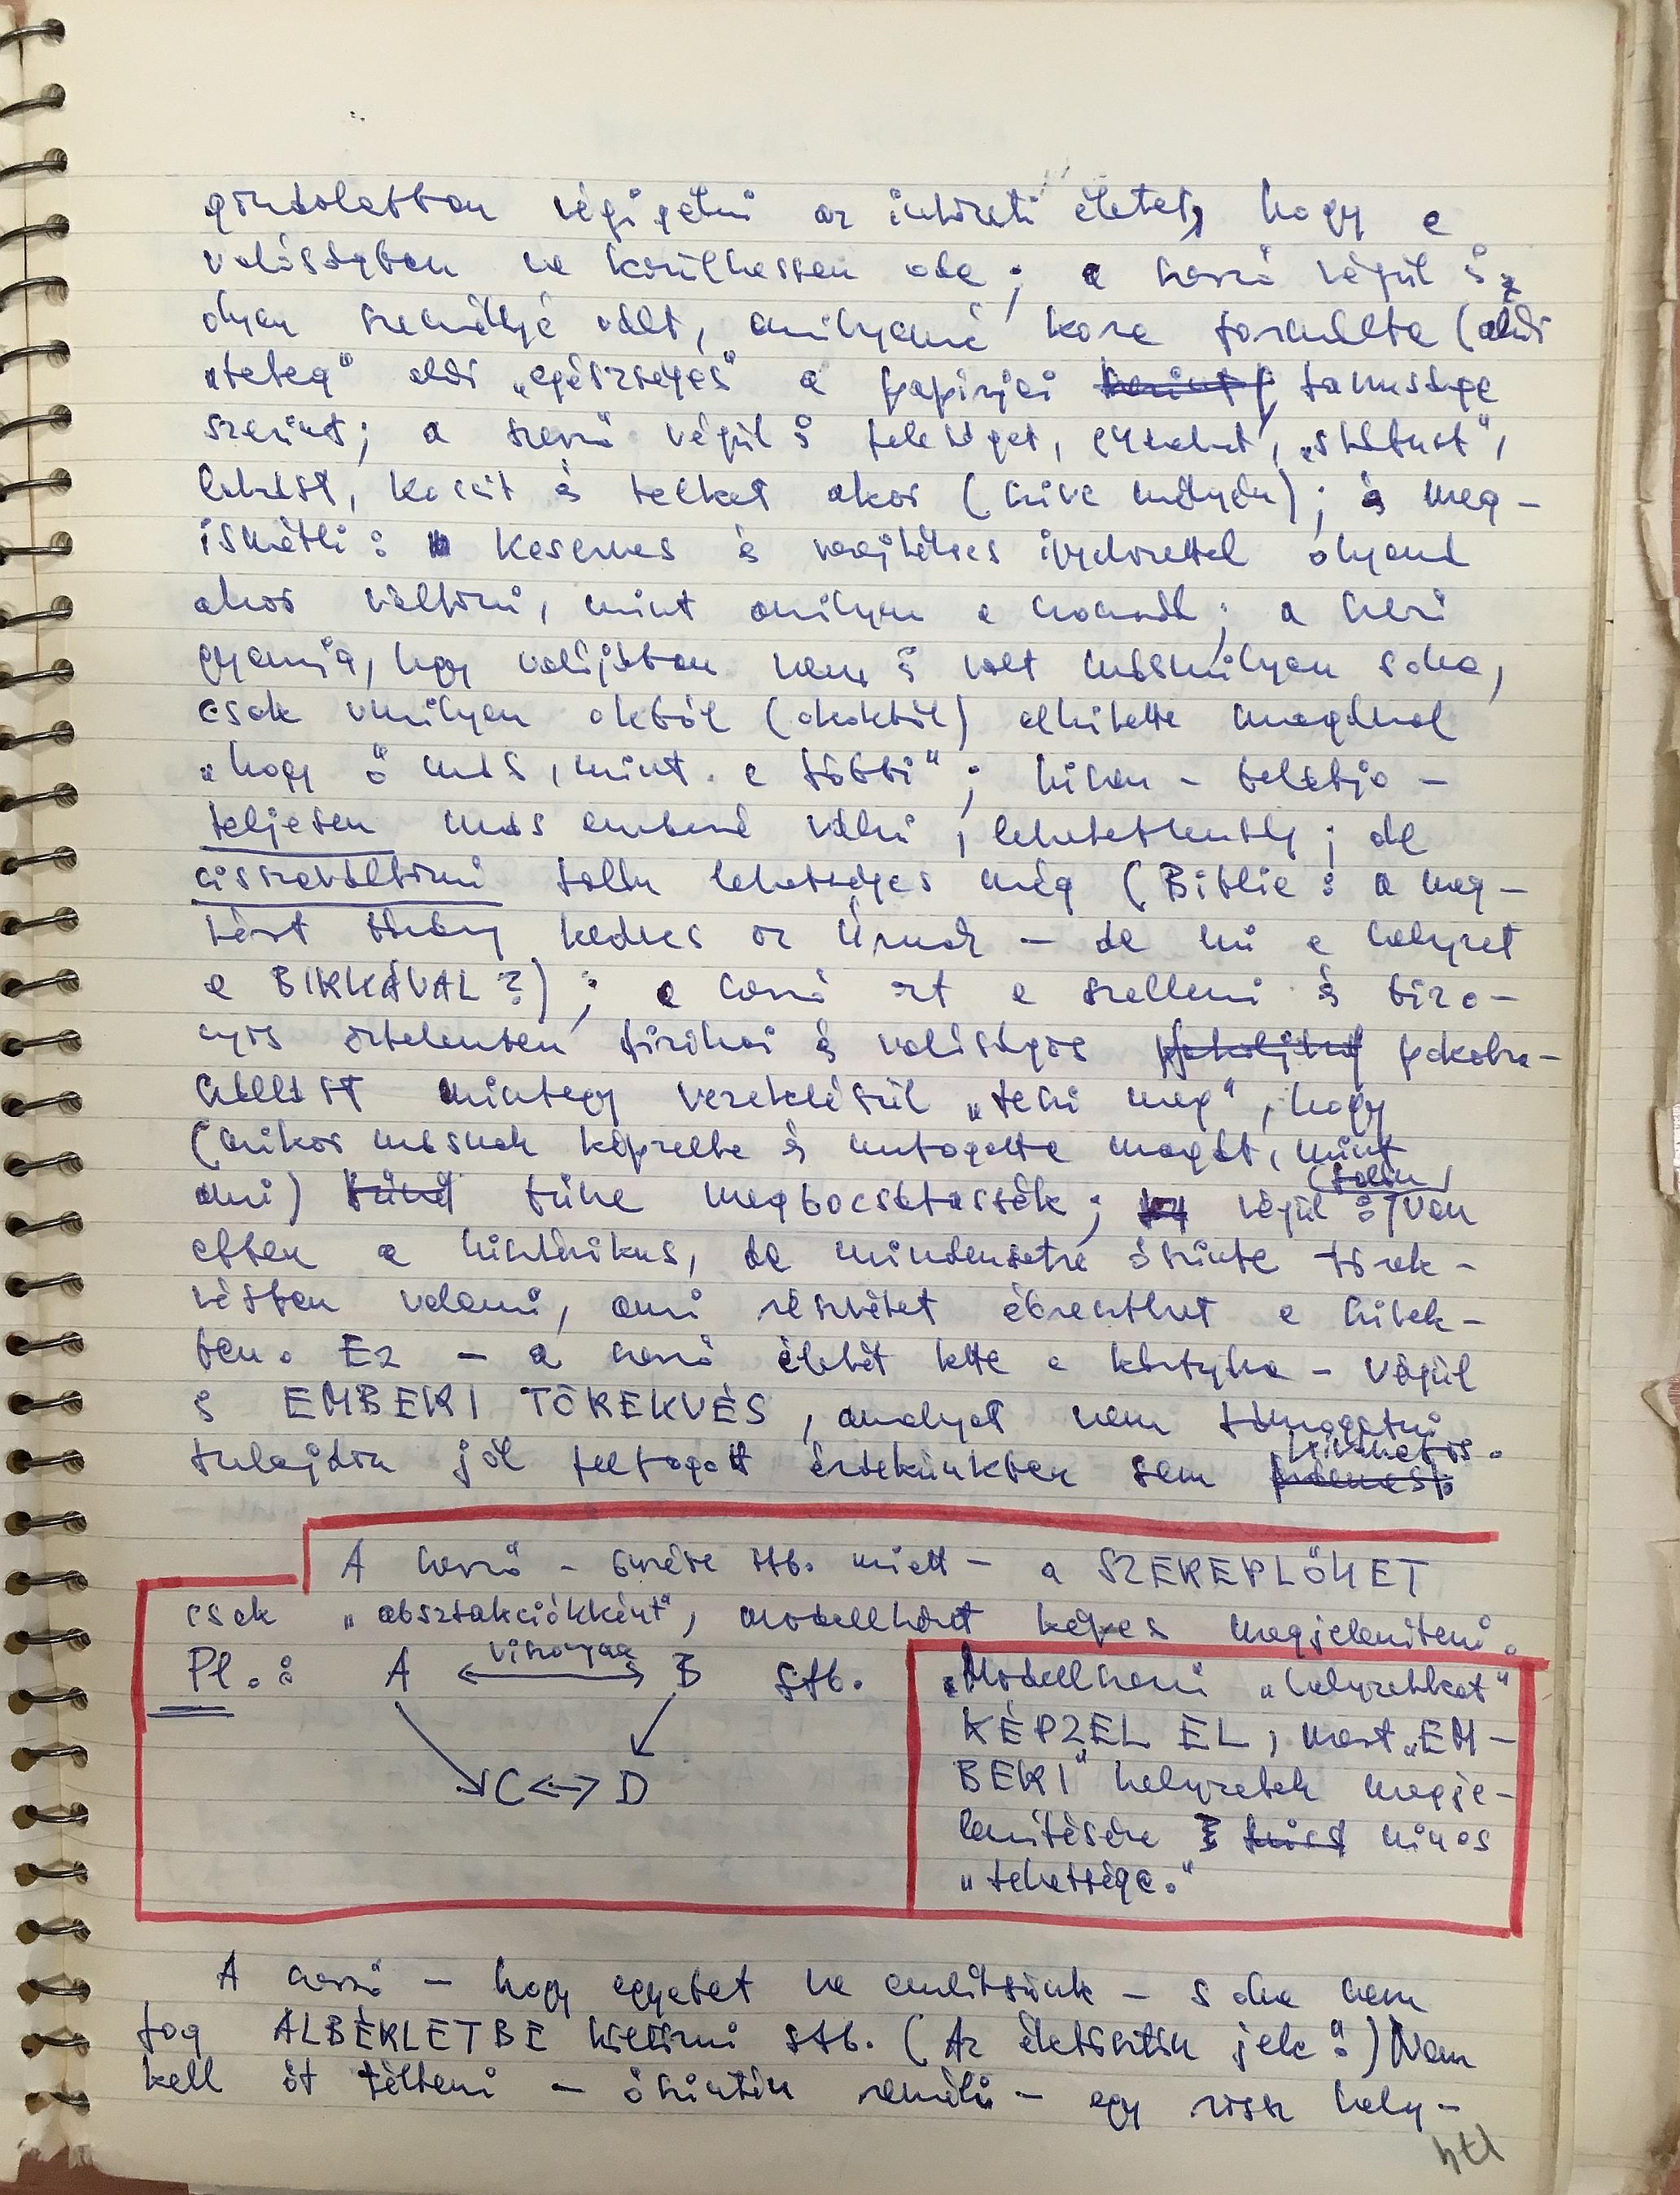 gondolatban végigélni az intézeti életet, hogy a
valóságban ne kerülhessen oda; a szerző végül is
olyan személlyé vált, amilyenné kora formálta (aki
„beteg” aki „egészséges” a papírjai tanusága
szerint; a szerző végül is feleséget, gyereket, „státust”,
lakást, kocsit és telket akar (szíve mélyén); és meg-
ismétli: keserves és igyekezettel olyanná
akar változni, mint amilyen a ; a
gyanúja, hogy valójában nem is volt másmilyen soha,
csak vmilyen okból (okokból) elhitette magával
„hogy ő más, mint a többi”; hiszen – belátja –
teljesen más emberré válni, lehetetlenség; de
visszaváltozni talán lehetséges még (Biblia: a meg-
tért bárány kedves az Úrnak – de mi a helyzet
a BIRKÁVAL?); a szerző ezt a szellemi és bizo-
nyos értelemben fizikai és valóságos pokolra-
szállást mintegy vezeklésül „teszi meg”, hogy
(mikor másnak képzelte és mutogatta magát, mint
ami) bűne megbocsátassék; végül is (talán) van
ebben a hisztérikus, de mindenesetre őszinte törek-
vésben valami, ami részvétet ébreszthet a szívek-
ben. Ez – a szerző életét tette a kártyára – végül
is EMBERI TÖREKVÉS, amelyet nem támogatni
tulajdon jól felfogott érdekünkben sem kívánatos.
A szerző – stb. miatt – a SZEREPLŐKET
csak „absztrakciókként”, modellként képes megjeleníteni.
Pl.: A ⟷ B stb.
viszonya
C ⟷ D
„Modellszerű „helyzeteket”
KÉPZEL EL, mert „EM-
BERI” helyzetek megje-
lenítésére nincs
„tehetsége.”
A szerző – hogy egyebet ne említsünk – soha nem
fog ALBÉRLETBE költözni stb. (Az életösztön jele is!) Nem
kell őt félteni – őszintén reméli – egy rossz hely-